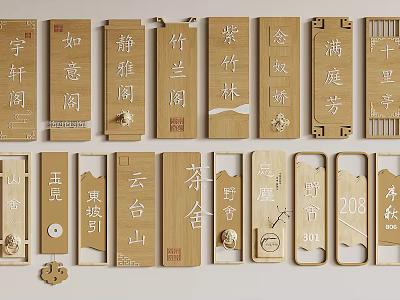 宇轩阁
如意阁
静雅阁
竹兰阁
紫竹林
念奴娇
满庭芳
十里亭
山舍
玉見
東坡引
云台山
茶舍
野舍
忘塵
野舍
301
208
本秋
806